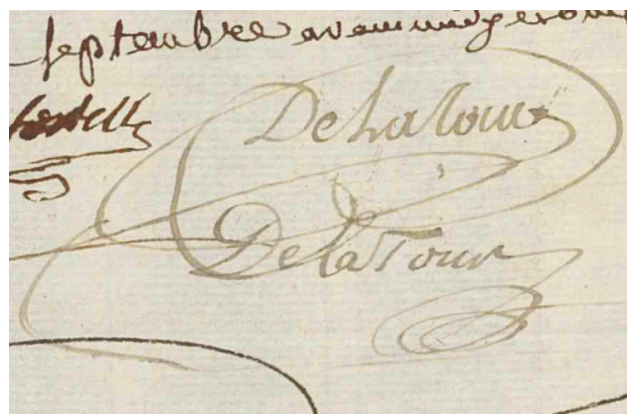 septembre avant midy
Delatour
DelaTour